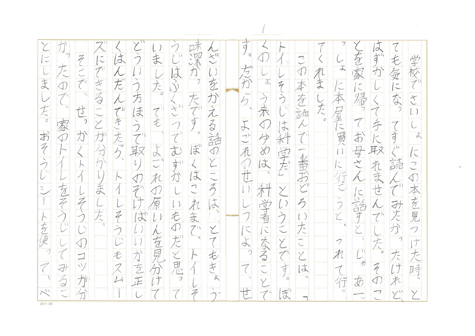 1
学校でさいしょにこの本を見つけた時、と
ても気になってすぐ読んでみたかったけれど
はずかしくて手に取れませんでした。そのこ
とを家に帰ってお母さんに話すと、じゃあ一
っしょに本屋に買いに行こうと、つれて行っ
てくれました。
この本を読んで一番おどろいたことは、「
トイレそうじは科学だ」ということです。ぼ
くのしょう来のゆめは、科学者になることで
す。だから、よごれのせいしつによって、せ
んざいをかえる話のところは、とてもきょう
味深かったです。ぼくはこれまで、トイレそ
うじはふくざつでむずかしいものだと思って
いました。でも、よごれの原いんを見分けて
どういう方ほうで取りのぞけばいいかを正し
くはんだんできたら、トイレそうじもスムー
ズにできることが分かりました。
そこで、せっかくトイレそうじのコツが分
かったので、家のトイレをそうじしてみるこ
とにしました。おそうじシートを使って、べ